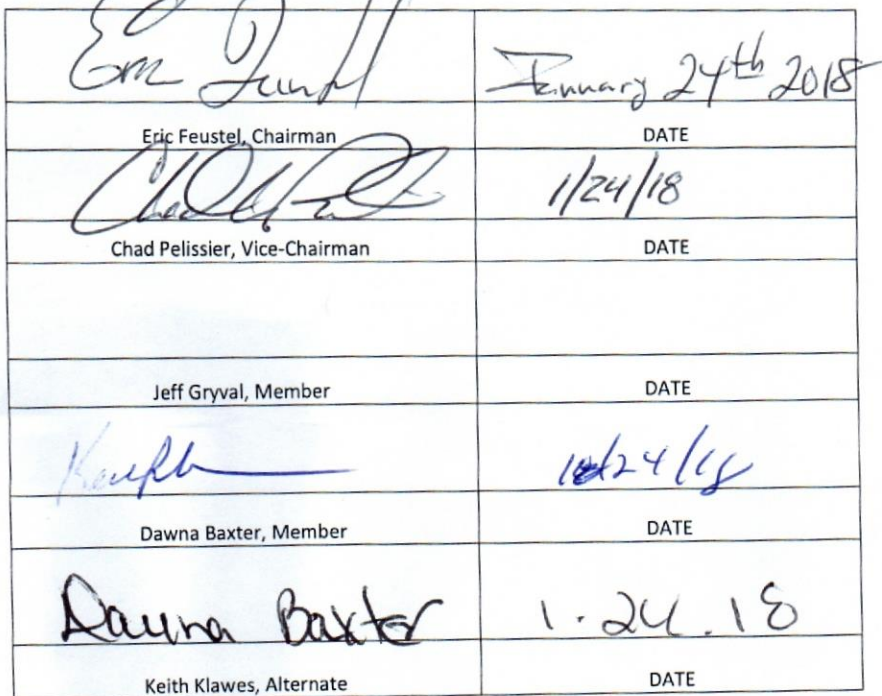 Eric January 24th 2018
Eric Feustel, Chairman DATE
Chad 1/24/18
Chad Pelissier, Vice-Chairman DATE
Jeff Gryval, Member DATE
/24/18
Dawna Baxter, Member DATE
Dawna Baxter 1.24.18
Keith Klawes, Alternate DATE